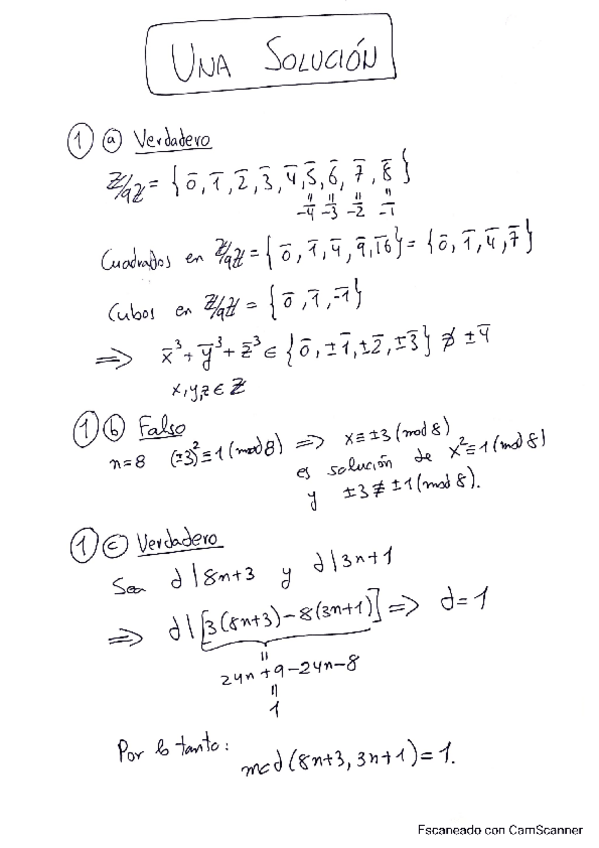 UNA SOLUCIÓN
1 a Verdadero
Z/9Z = { 0̄, 1̄, 2̄, 3̄, 4̄, 5̄, 6̄, 7̄, 8̄ }
= = = =
-4 -3 -2 -1
Cuadrados en Z/9Z = { 0̄, 1̄, 4̄, 9̄, 16̄ } = { 0̄, 1̄, 4̄, 7̄ }
Cubos en Z/9Z = { 0̄, 1̄, -1̄ }
⟹ x̄³ + ȳ³ + z̄³ ∈ { 0̄, ±1̄, ±2̄, ±3̄ } ∌ ±4̄
x, y, z ∈ Z
1 b Falso
n=8 (±3)² ≡ 1 (mod 8) ⟹ x ≡ ±3 (mod 8)
es solución de x² ≡ 1 (mod 8)
y ±3 ≢ ±1 (mod 8).
1 c Verdadero
Sea d | 8n+3 y d | 3n+1
⟹ d | [3(8n+3) - 8(3n+1)] ⟹ d = 1
=
24n + 9 - 24n - 8
=
1
Por lo tanto:
mcd (8n+3, 3n+1) = 1.
Escaneado con CamScanner